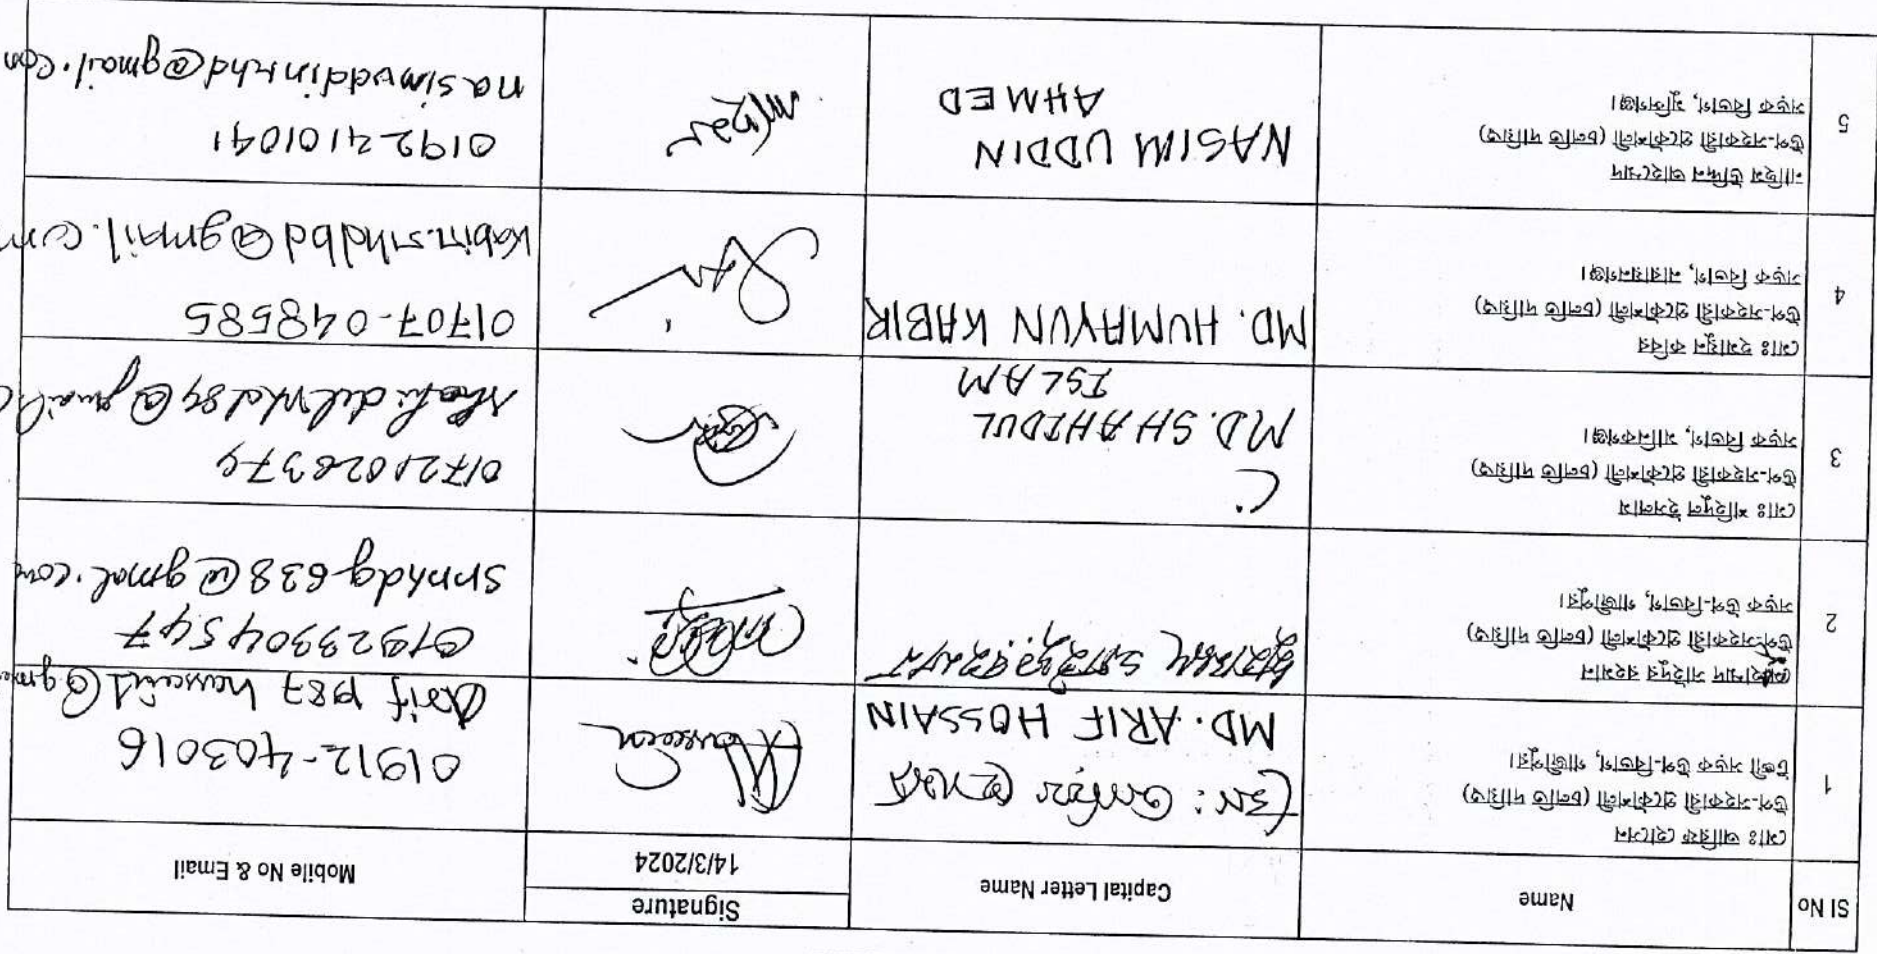 Sl No
Name
Capital Letter Name
Signature
14/3/2024
Mobile No & Email
1
মোঃ আরিফ হোসেন
উপ-সহকারী প্রকৌশলী (চলতি দায়িত্ব)
টঙ্গী সড়ক উপ-বিভাগ, গাজীপুর।
মো: আরিফ হোসেন
MD. ARIF HOSSAIN
01912-403016
2
সাইদুর রহমান
উপ-সহকারী প্রকৌশলী (চলতি দায়িত্ব)
সড়ক উপ-বিভাগ, গাজীপুর।
01923904547
3
মোঃ শহিদুল ইসলাম
উপ-সহকারী প্রকৌশলী (চলতি দায়িত্ব)
সড়ক বিভাগ, মানিকগঞ্জ।
MD. SHAHIDUL
ISLAM
4
মোঃ হুমায়ুন কবির
উপ-সহকারী প্রকৌশলী (চলতি দায়িত্ব)
সড়ক বিভাগ, নারায়নগঞ্জ।
MD. HUMAYUN KABIR
01707-048585
kabir.rhdbd@gmail.com
5
নাছিম উদ্দিন আহাম্মেদ
উপ-সহকারী প্রকৌশলী (চলতি দায়িত্ব)
সড়ক বিভাগ, মুন্সিগঞ্জ।
NASIM UDDIN
AHMED
01924101041
nasimuddinrhd@gmail.com